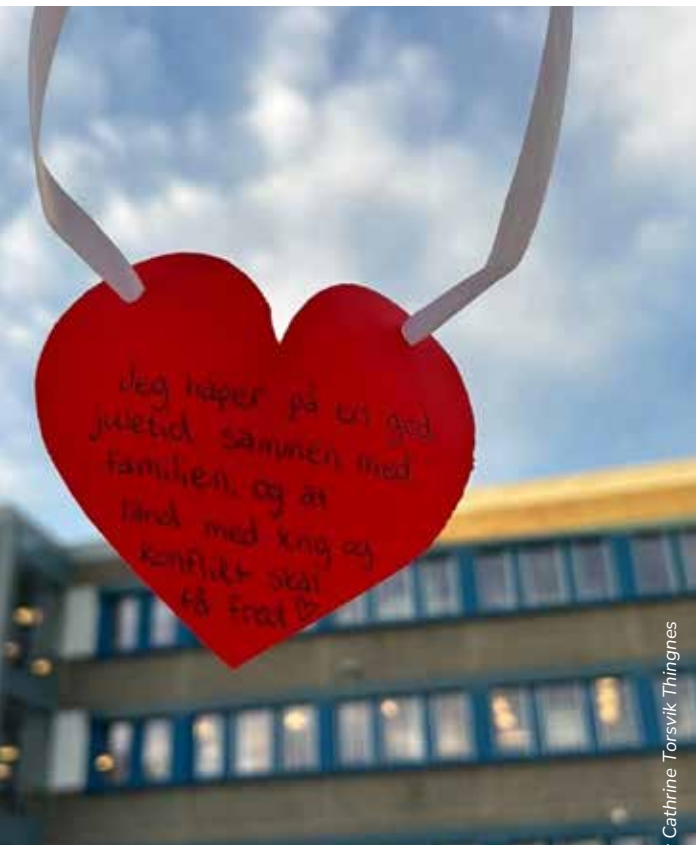 Jeg håper på en god
juletid sammen med
familien, og at
land med krig og
konflikt skal
få fred ♡
Cathrine Torsvik Thingnes